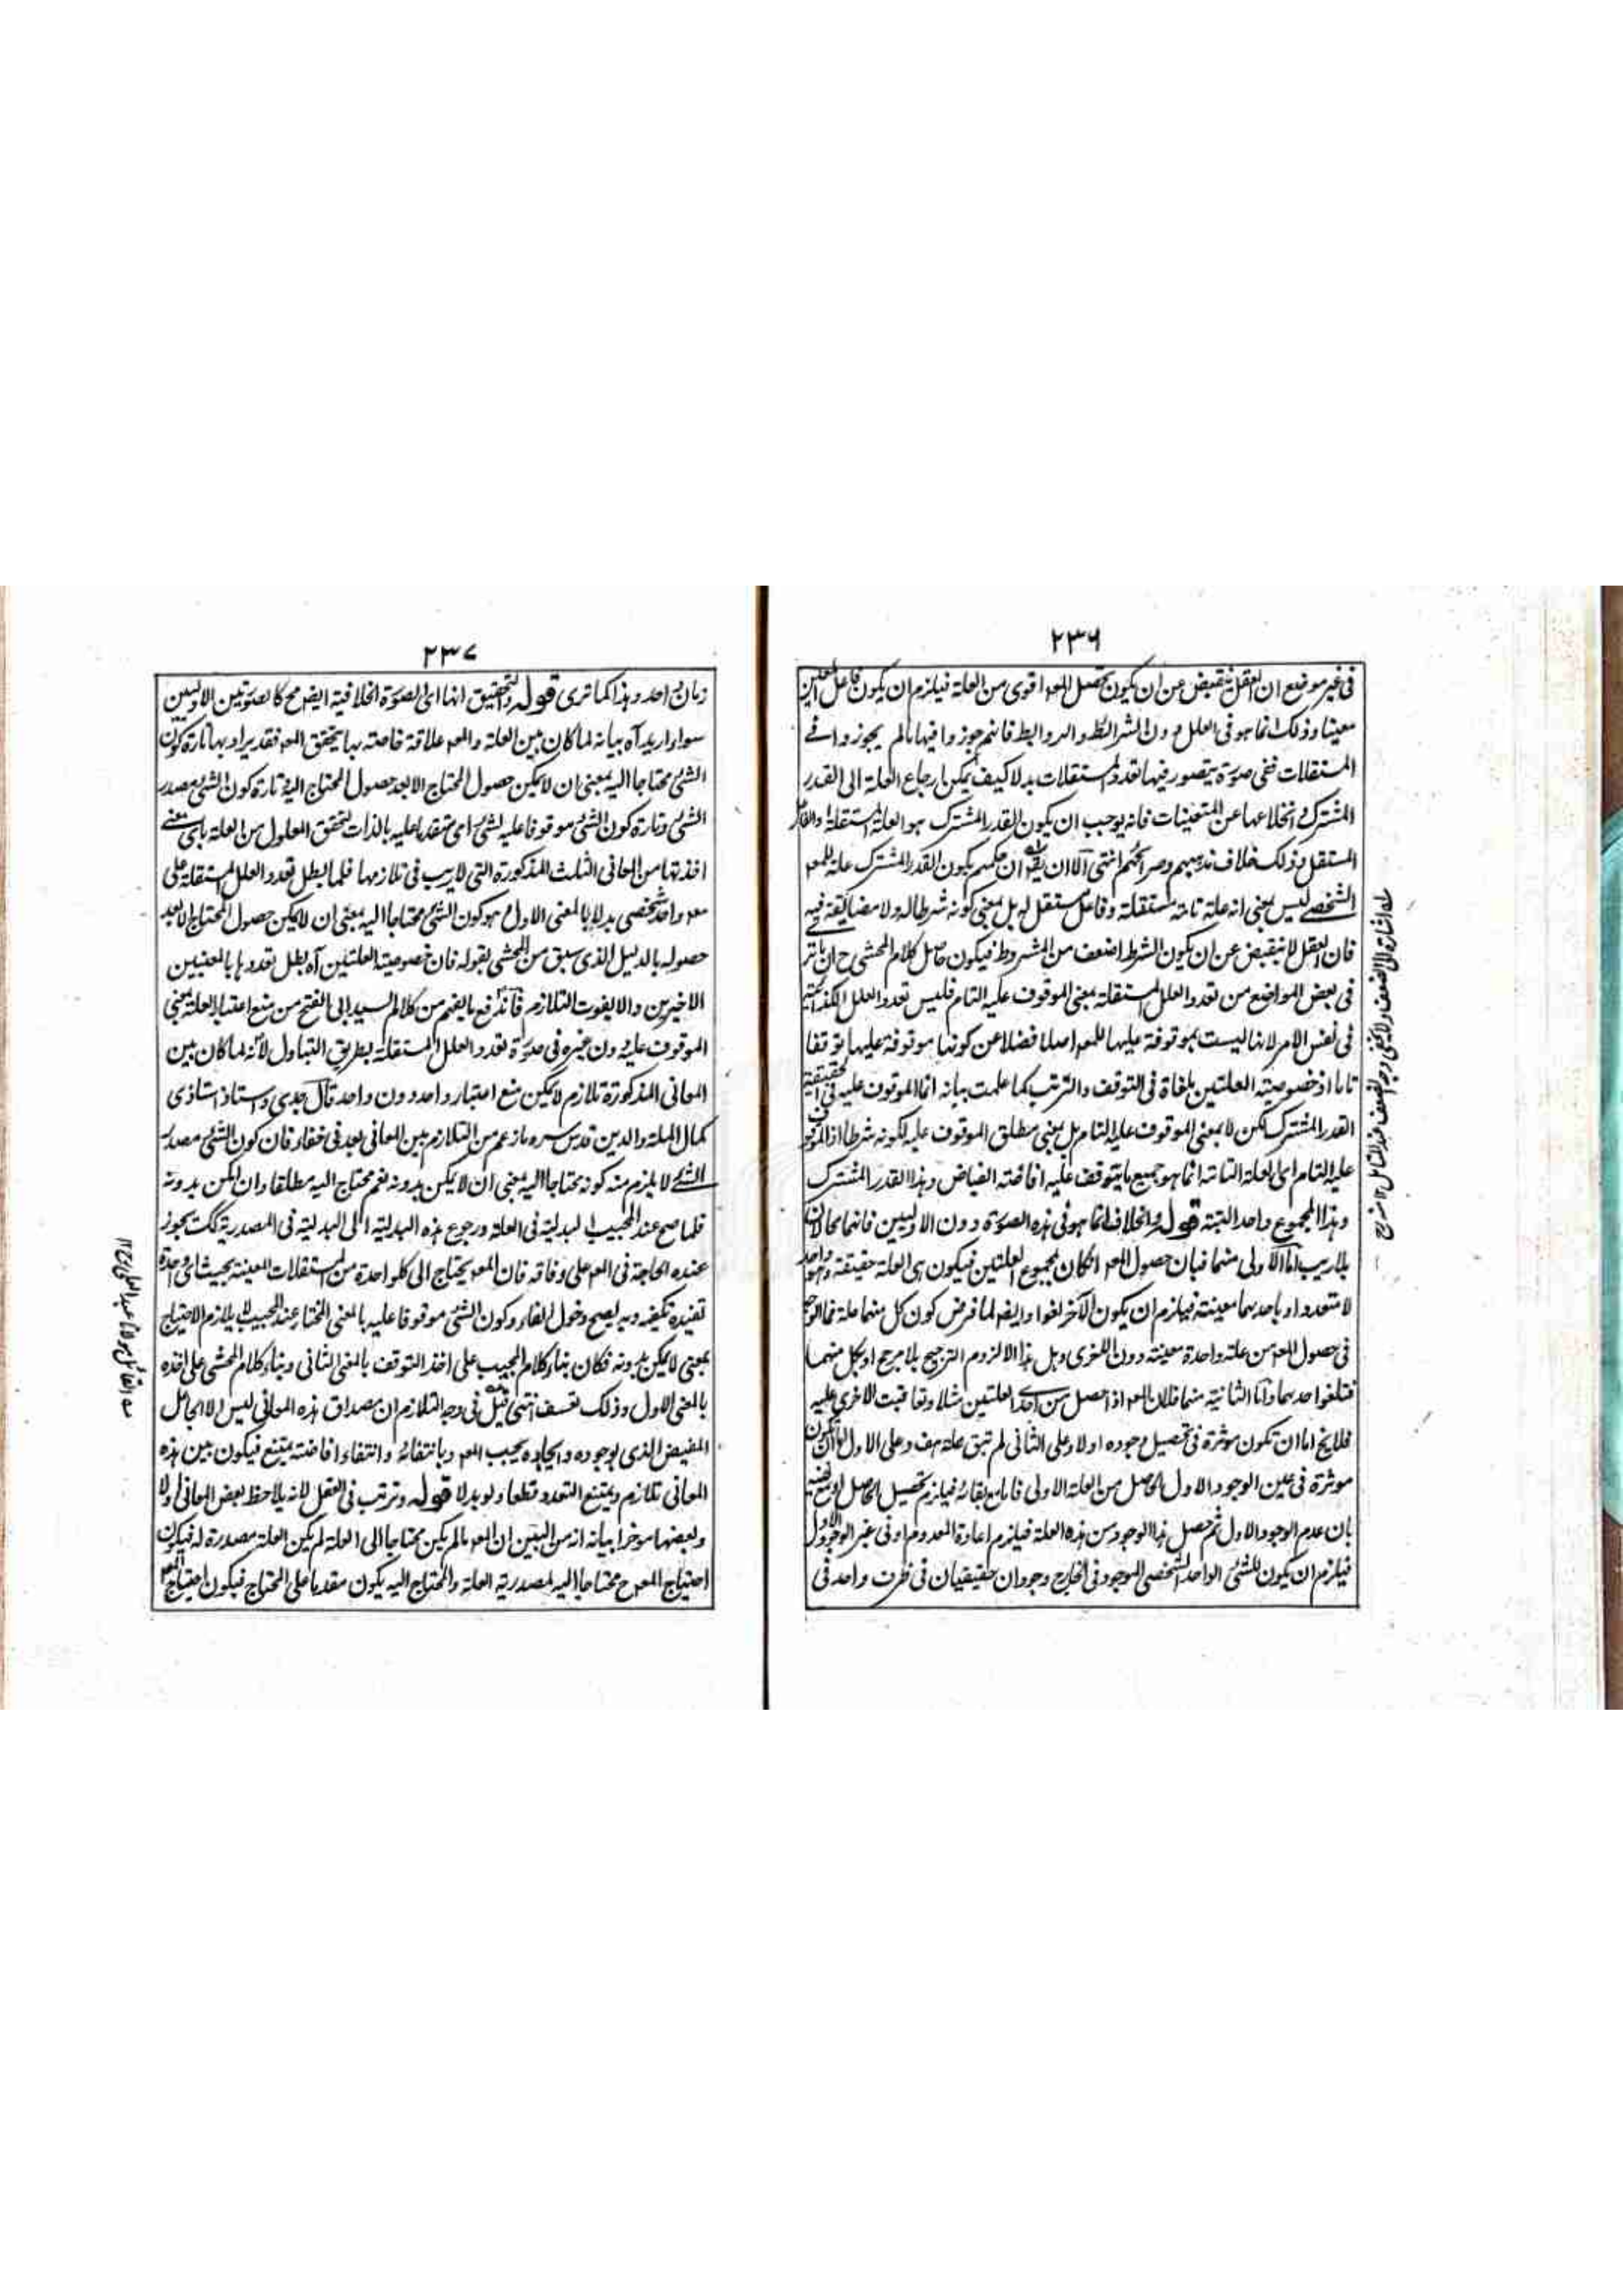 ٢٣٦
فى غير موضع ان العقل ينقبض عن ان يكون تحصيل المعـ اقوى من العلة فيلزم ان يكون فاعل المعين
معينا وذلك انما هو فى العلل دون الشرائط والروابط فانهم جوزوا فيها ما لم يجوزوا فے
المستقلات ففى صورة يتصور فيها تعدد المستقلات بدلا كيف يمكن ارجاع العلة الى القدر
المشترك وانخلاعها عن المتعينات فانه يوجب ان يكون القدر المشترك هو العلة المستقلة والفاعل
المستقل وذلك خلاف مذهبهم وصرائحهم انتهى الا ان يقـ ان حكمهم بكون القدر المشترك علة للمعـ
الشخصے ليس بمعنى انه علة تامة مستقلة وفاعل مستقل له بل بمعنى كونه شرطا له ولا مضايقة فيه
فان العقل لا ينقبض عن ان يكون الشرط اضعف من المشروط فيكون حاصل كلام المحشى ح ان ما تر فے
فى بعض المواضع من تعدد العلل المستقلة بمعنى الموقوف عليه التام فليس تعدد العلل الكذائية
فى نفس الامر لانها ليست بموقوفة عليها للمعـ اصلا فضلا عن كونها موقوفة عليها توقفا
تاما اذ خصوصية العلتين ملغاة فى التوقف والترتب كما علمت بيانه انما الموقوف عليه فى الحقيقة
القدر المشترك لكن لا بمعنى الموقوف عليه التام بل بمعنى مطلق الموقوف عليه لكونه شرطا اذ الموقوف
عليه التام اى العلة التامة انما هو جميع ما يتوقف عليه افاضة الفياض وهذا القدر المشترك
وهذا المجموع واحد البتة قوله والخلاف انما هو فى هذه الصورة دون الاوليين فانهما محالان
بلا ريب اما الاولى منهما فبان حصول المعـ ان كان بمجموع العلتين فيكون هى العلة حقيقة واحد
لا متعدد او باحدهما معينة فيلزم ان يكون الآخر لغوا وايضـ لما فرض كون كل منهما علة فما الوجه
فى حصول المعـ من علة واحدة معينة دون الاخرى وهل هذا الا لزوم الترجيح بلا مرجح او بكل منهما
فتلغو احدهما واما الثانية منهما فلان المعـ اذا حصل من احدے العلتين مثلا وتعاقبت الاخرى عليه
فلا يخ اما ان تكون موثرة فى تحصيل وجوده اولا وعلى الثانى لم تبق علة هف وعلى الاول اما ان تكون
موثرة فى عين الوجود الاول الحاصل من العلة الاولى فاما مع بقائه فيلزم تحصيل الحاصل او مع نفيه
بان عدم الوجود الاول ثم حصل هذا الوجود من هذه العلة فيلزم اعادة المعدوم او فى غير الوجود الاول
فيلزم ان يكون للشئ الواحد الشخصى الموجود فى الخارج وجودان حقيقيان فى ظرف واحد فى
٢٣٧
زمان واحد وهذا كما ترى قوله والتحقيق انها اى الصورة الخلافية ايضـ مح كالصورتين الاوليين
سواء اريد آه بيانه لما كان بين العلة والمعـ علاقة خاصة بها يتحقق المعـ فقد يراد بها تارة كون
الشئ محتاجا اليه بمعنى ان لا يمكن حصول المحتاج الا بعد حصول المحتاج اليه وتارة كون الشئ مصدر
الشئ وتارة كون الشئ موقوفا عليه لشئ اى متقدما عليه بالذات لتحقق المعلول من العلة باى معنے
اخذتها من المعانى الثلث المذكورة التى لا ريب فى تلازمها فلما بطل تعدد العلل المستقلة على
معـ واحد شخصى بدلا بالمعنى الاول وهو كون الشئ محتاجا اليه بمعنى ان لا يمكن حصول المحتاج الا بعد
حصوله بالدليل الذى سبق من المحشى بقوله فان خصوصية العلتين آه بطل تعددها بالمعنيين
الاخيرين والا يفوت التلازم فاندفع ما يفهم من كلام السيد ابى الفتح من منع اعتبار العلة بمعنى
الموقوف عليه دون غيره فى صورة تعدد العلل المستقلة بطريق التبادل لانه لما كان بين
المعانى المذكورة تلازم لا يمكن منع اعتبار واحد دون واحد قال جدى واستاذ استاذى
كمال الملة والدين قدس سره ما زعم من التلازم بين المعانى بعد فى خفاء فان كون الشئ مصدر
الشئے لا يلزم منه كونه محتاجا اليه بمعنى ان لا يمكن بدونه نعم محتاج اليه مطلقا وان امكن بدونه
فلما صح عند المجيب البدلية فى العلة ورجوع هذه البدلية الى البدلية فى المصدرية كك يجوز
عنده الحاجة فى المعـ على وفاقه فان المعـ يحتاج الى كل واحدة من المستقلات المعينة بحيث اى واحدة
تفيده تكفيه وبه يصح دخول الفاء وكون الشئ موقوفا عليه بالمعنى المختار عند المجيب لا يلازم الاحتياج
بمعنى لا يمكن بدونه فكان بناء كلام المجيب على اخذ التوقف بالمعنى الثانى وبناء كلام المحشى على اخذه
بالمعنى الاول وذلك تعسف انتهى قيل فى وجه التلازم ان مصداق هذه المعانى ليس الا الجاعل
المفيض الذى بوجوده وايجاده يجب المعـ وبانتفائه وانتفاء افاضته يمتنع فيكون بين هذه
المعانى تلازم ويمتنع التعدد قطعا ولو بدلا قوله وترتب فى العقل لانه يلاحظ بعض المعانى اولا
وبعضها موخرا بيانه انه من البين ان المعـ ما لم يكن محتاجا الى العلة لم يكن العلة مصدرة له فيكون
احتياج المعـ ح محتاجا اليه لمصدرية العلة والمحتاج اليه يكون مقدما على المحتاج فيكون احتياج المعـ